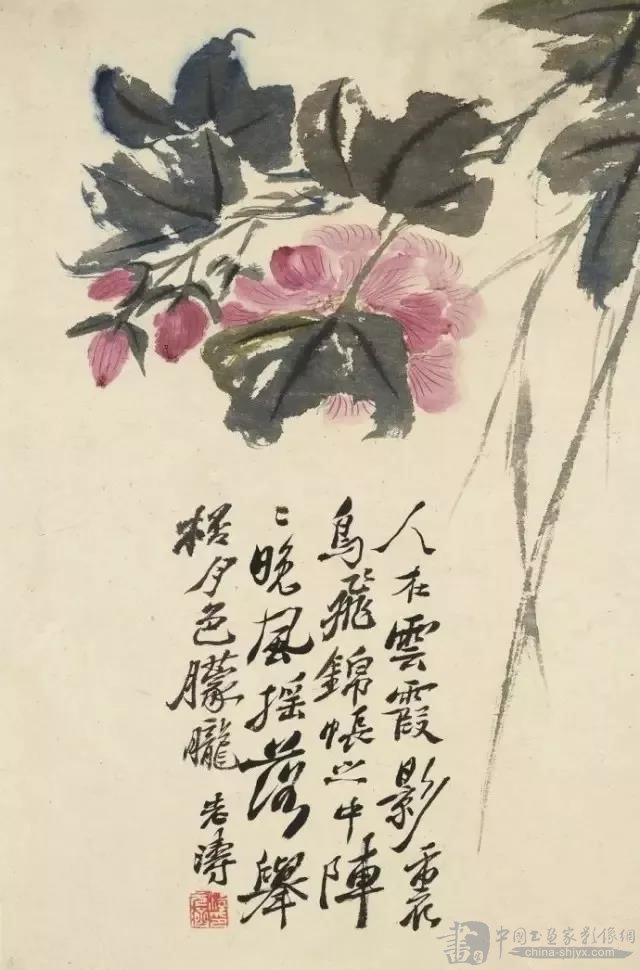 人在雲霞影
鳥飛錦帳之中陣
〻晚風搖落舉
月色朦朧 老濤
書
中国书画家影像網
china-shjyx.com